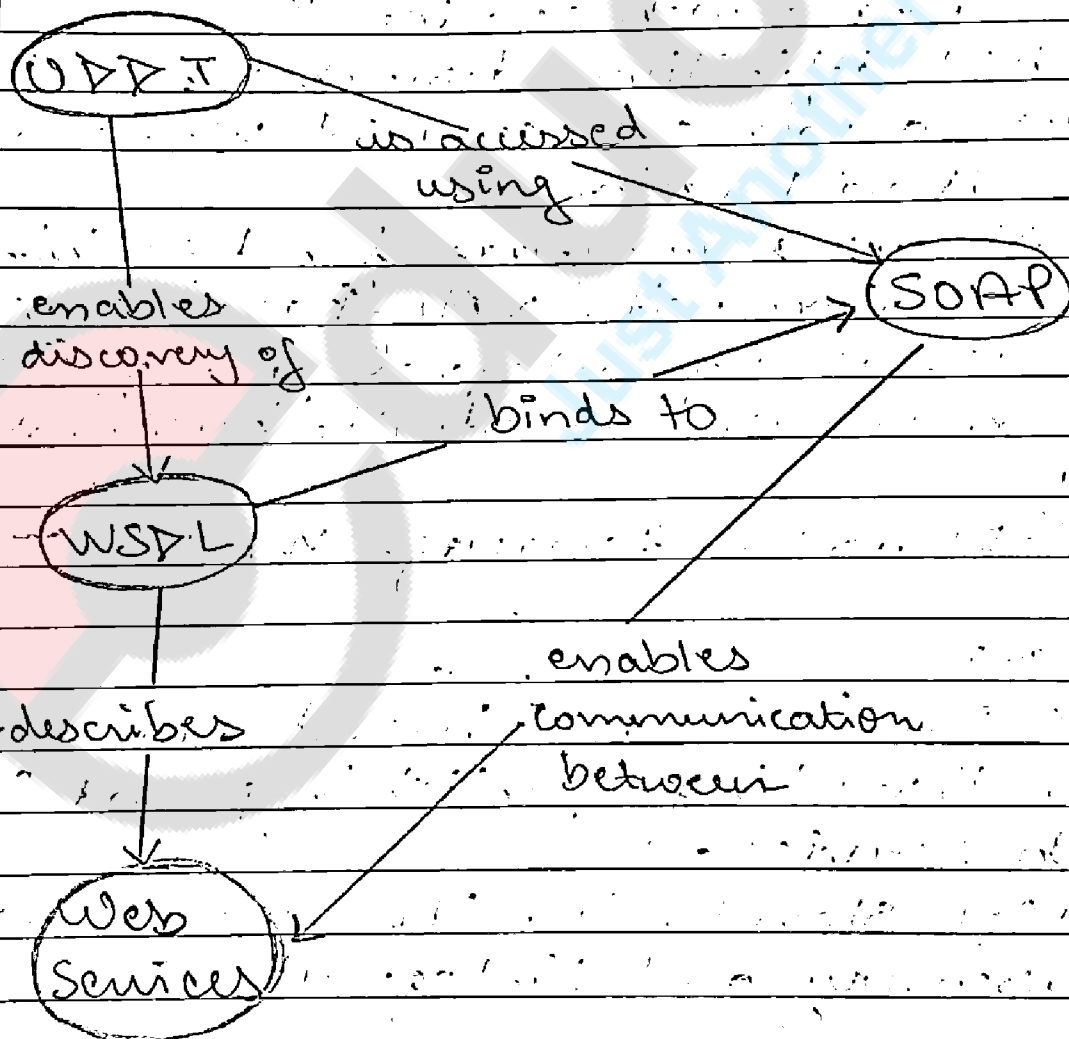 UDDI
is accessed
using
SOAP
enables
discovery of
binds to
WSDL
enables
describes
communication
between
Web
Services
Just Another